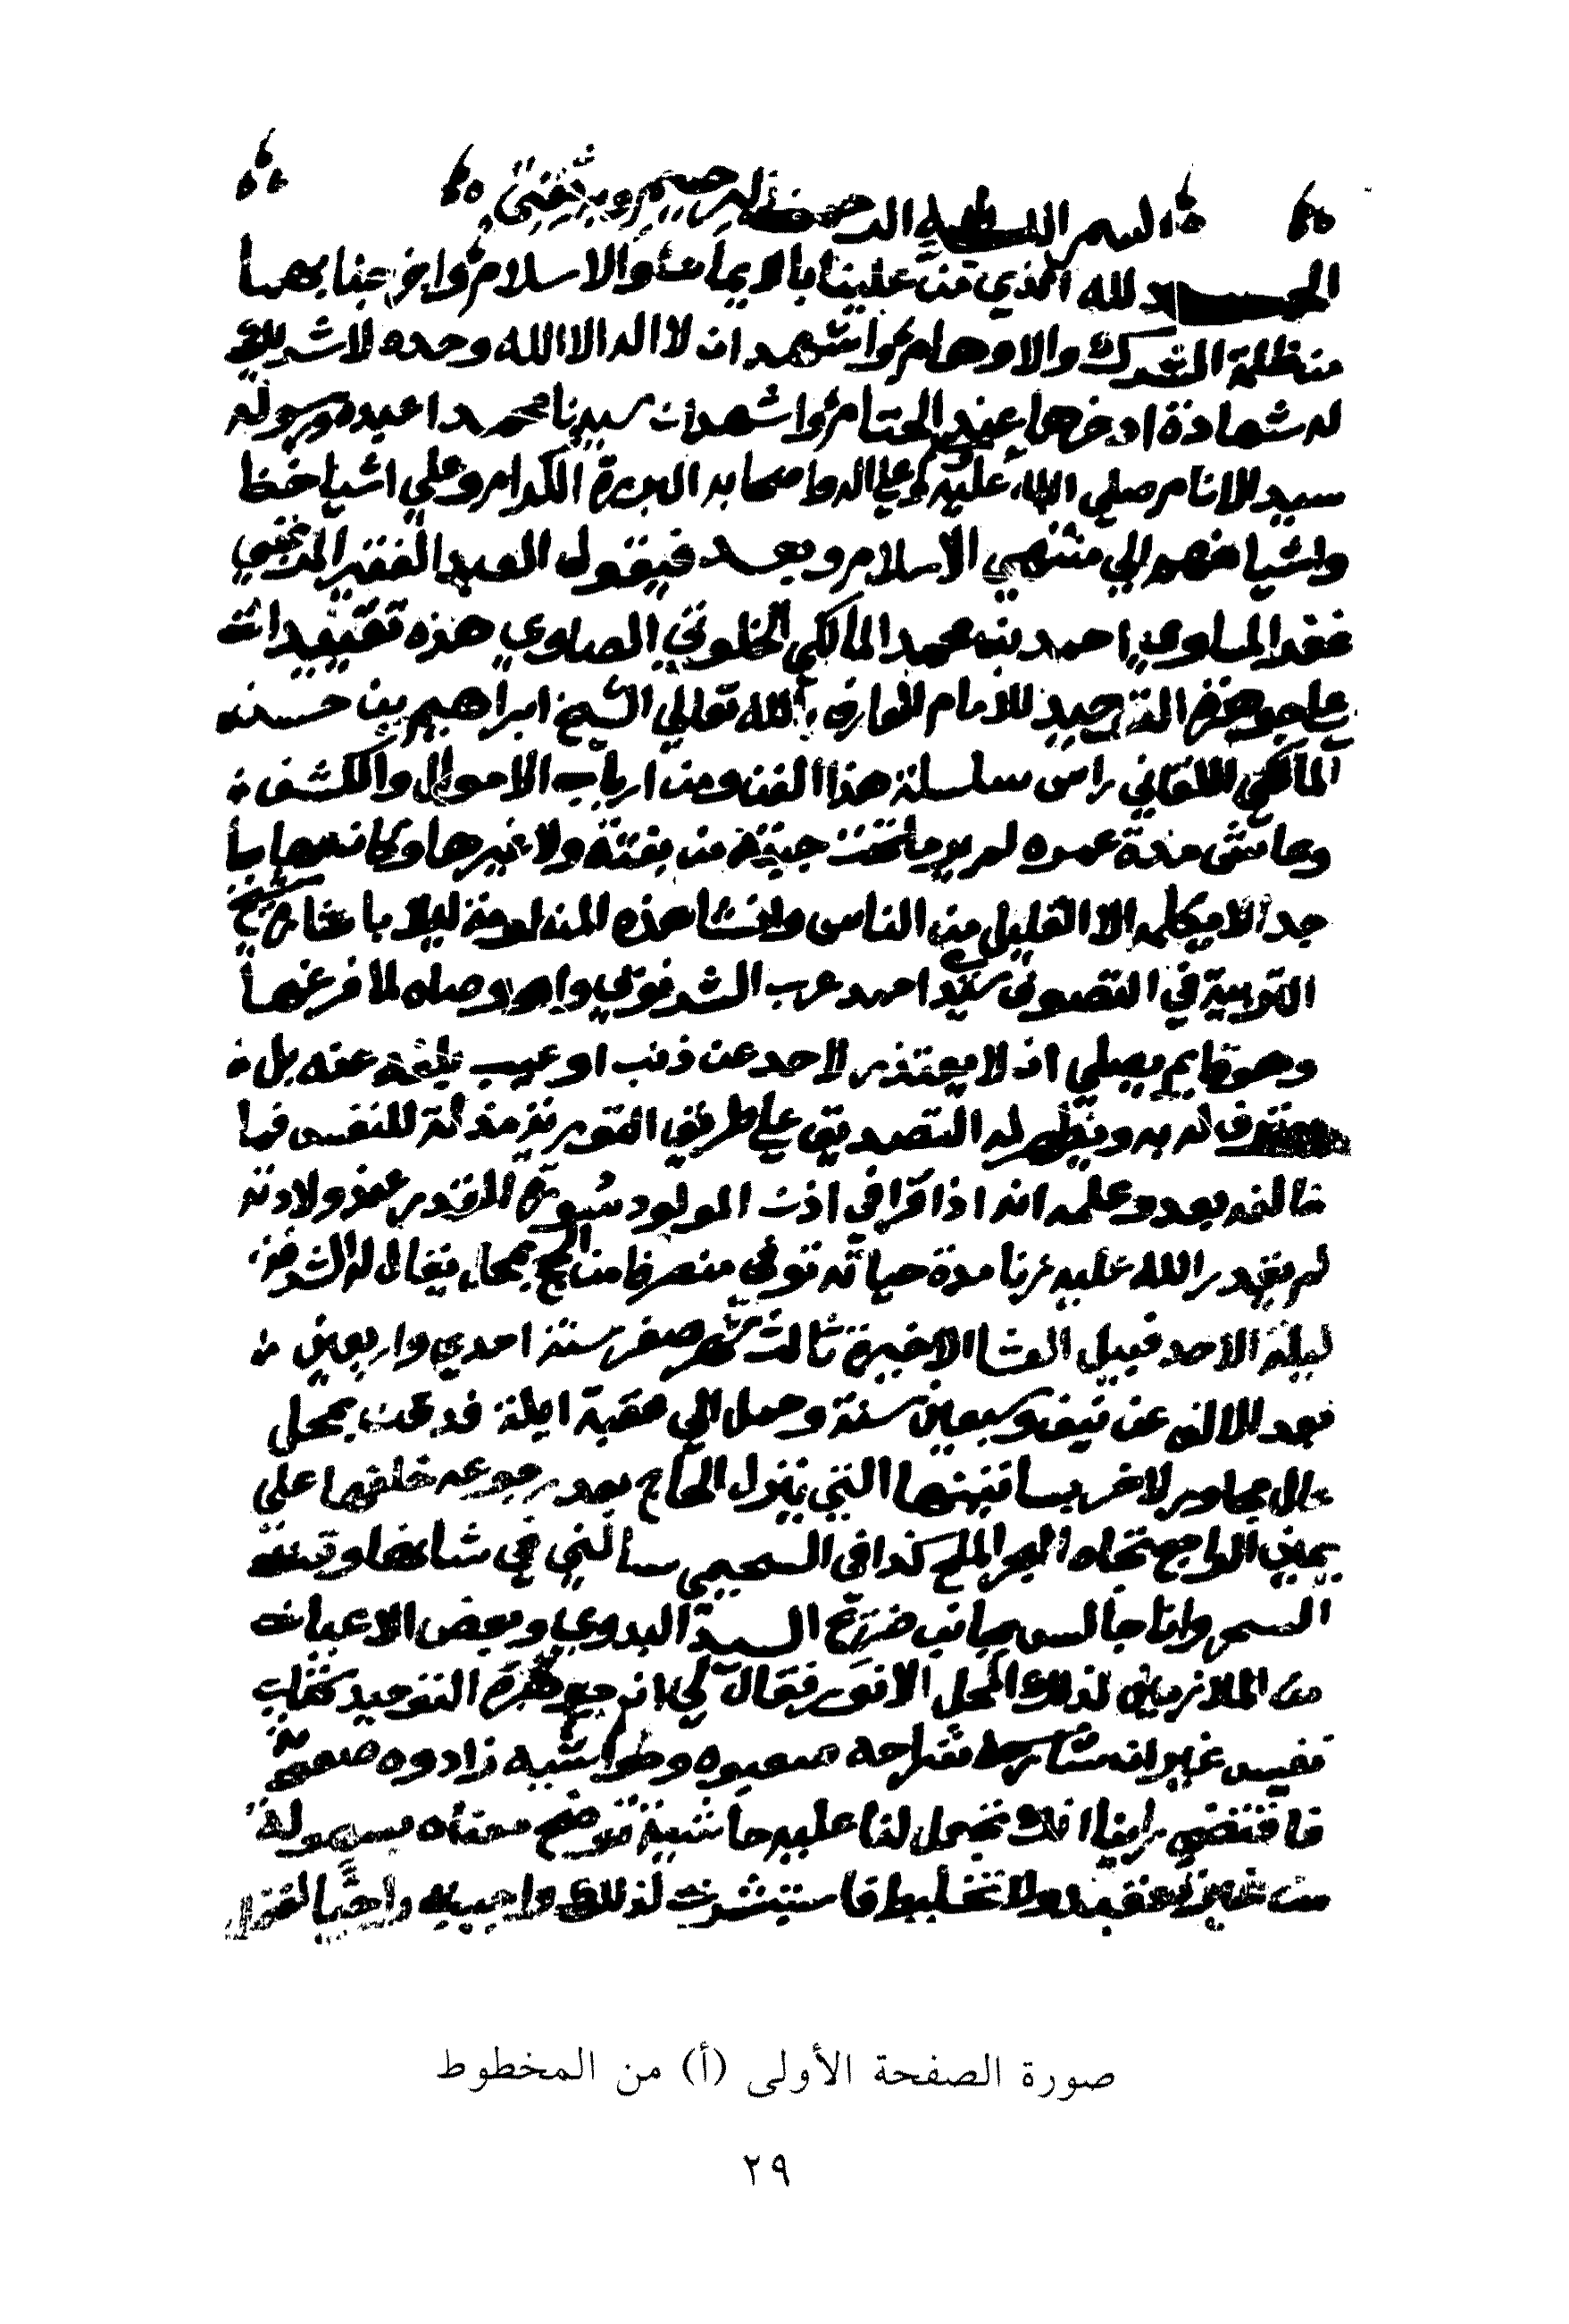 بسم الله الرحمن الرحيم وبه ثقتي
الحمد لله الذي من علينا بالايمان والاسلام واخرجنا بهما
من ظلمة الشرك والاوهام واشهد ان لا اله الا الله وحده لا شريك
له شهادة ادخرها عند الختام واشهد ان سيدنا محمدا عبده ورسوله
سيد الانام صلي الله عليه وعلي اله واصحابه البررة الكرام وعلي اشياخنا
واشياخهم الي منتهي الاسلام وبعد فيقول العبد الفقير المرتجي
عفو المساوي احمد بن محمد المالكي الخلوتي الصاوي هذه تقييدات
علي جوهرة التوحيد للامام العارف بالله تعالي الشيخ ابراهيم بن حسن
المالكي اللقاني راس سلسلة هذا الفن ومن ارباب الاحوال والكشف
وعاش مدة عمره لم ير ما تحت جبته من بفتة ولا غيرها وكان مهابا
جدا لا يكلمه الا القليل من الناس وانشا هذه المنظومة ليلا باشارة شيخ
التربية في التصوف سيد احمد عرب الشرنوبي واوصاه لما فرغها
وهو قايم يصلي ان لا يعتذر لاحد عن ذنب او عيب بلغه عنه بل
يعترف له به ويظهر له التصديق علي طريق التورية مذلة للنفس فما
خالفه بعد وعلمه انه اذا قرا في اذن المولود سورة القدر عند ولادته
لم يقدر الله عليه زنا مدة حياته توفي منصرفا من الحج بمحل يقال له الشرفة
ليلة الاحد قبيل العشا الاخيرة ثالث شهر صفر سنة احدي واربعين
بعد الالف عن نيف وسبعين سنة وحمل الي عقبة ايلة فدفن بمحل
عال مجاور لاخر بساتينها التي ينزل الحاج بعد رجوعه خلفها علي
يمين الراجع تجاه البحر الملح كذا في السحيمي سالني في شانها وقت
السحر وانا جالس بجانب ضريح السيد البدوي وبعض الاعيان
من الملازمين لذلك المحل الانور فقال لي ان جوهرة التوحيد كتاب
نفيس غير ان شارحه صعبوه وحواشيه زادوه صعوبة
فاقتضي راينا انك تجعل لنا عليه حاشية توضح معناه بسهولة
من غير تعقيد ولا تخليط فاستبشرت لذلك واجبته راجيا
صورة الصفحة الأولى (أ) من المخطوط
٢٩